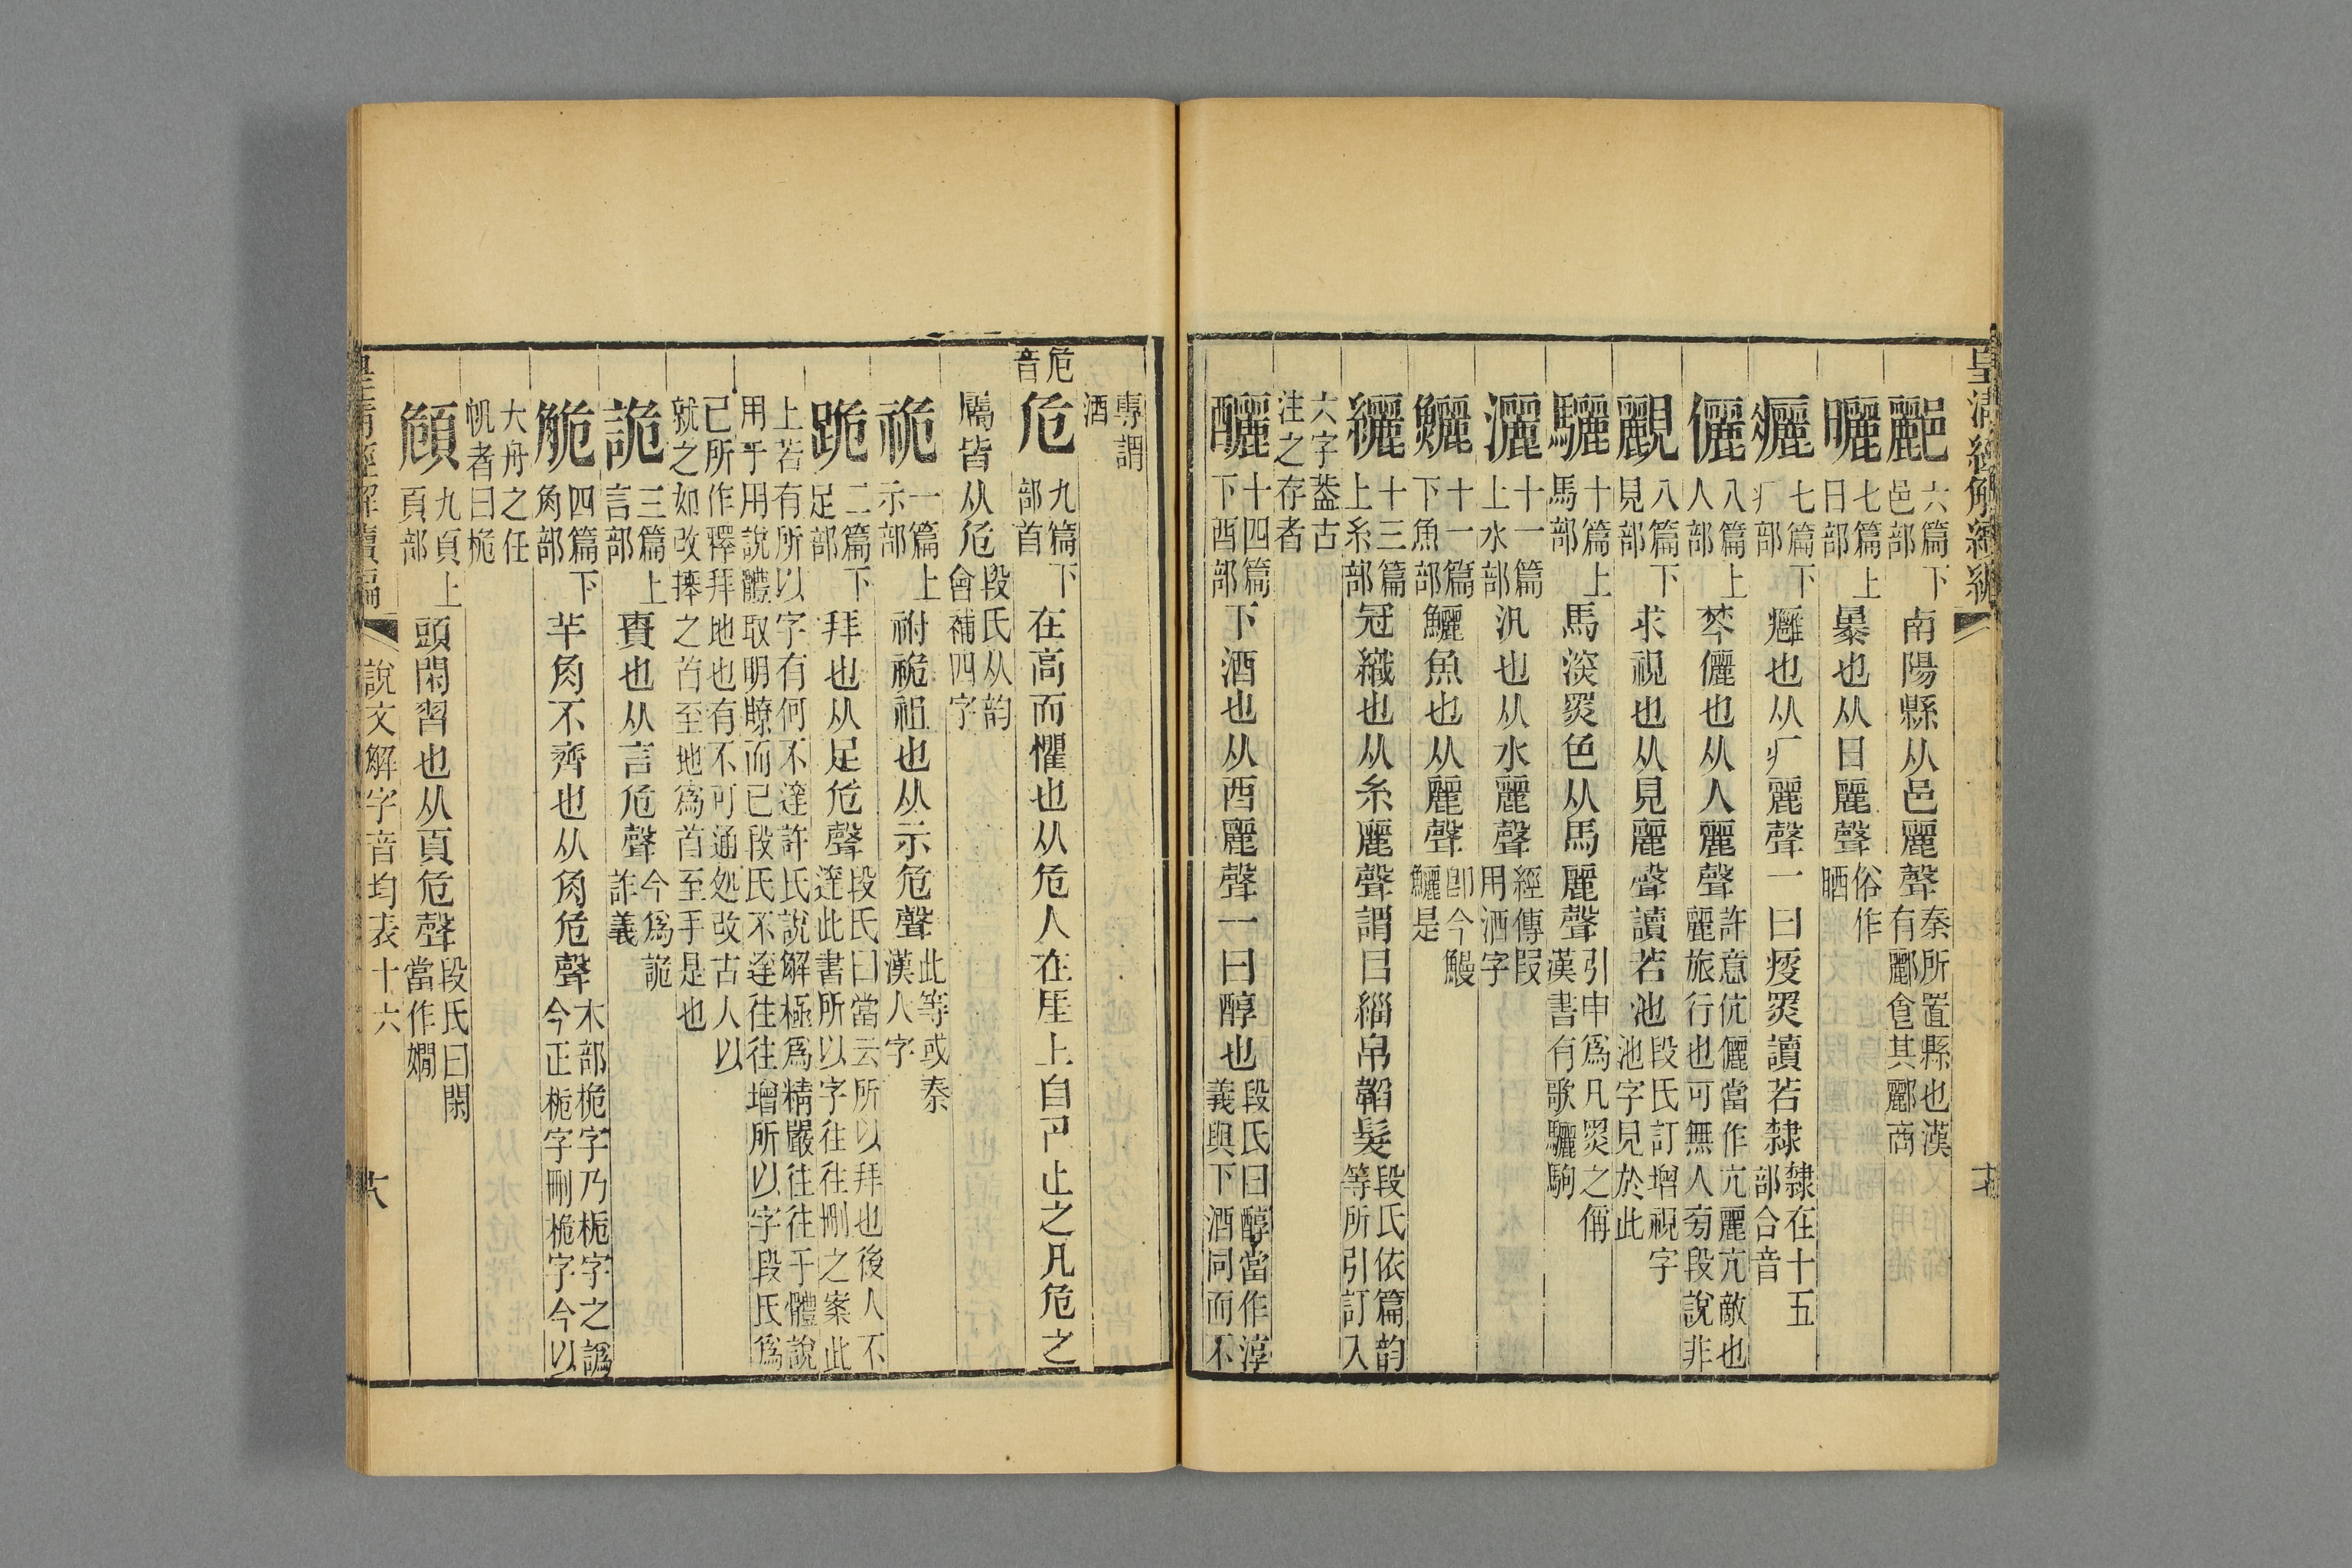 皇清經解續編
酈六篇下邑部南陽縣从邑麗聲秦所置縣也漢有酈食其酈商
曬七篇上日部暴也从日麗聲俗作晒
㿛七篇下疒部癰也从疒麗聲一曰痎㒼讀若隸隸在十五部合音
儷八篇上人部棽儷也从人麗聲許意伉儷當作亢麗亢敵也麗旅行也可無人㫄段說非
觀八篇下見部求視也从見麗聲讀若池段氏訂增視字池字見於此
驪十篇上馬部馬淡罴色从馬麗聲引申爲凡罴之偁漢書有歌驪駒
灑十一篇上水部汛也从水麗聲經傳叚用洒字
鱺十一篇下魚部鱺魚也从麗聲卽今鰻鱺是
纚十三篇上糸部冠織也从糸麗聲謂㠯緇帛韜髮段氏依篇韵等所引訂入
六字葢古注之存者
釃十四篇下酉部下酒也从酉麗聲一曰醇也段氏曰醇當作淳義與下酒同而不
專謂酒
危音
危九篇下部首在高而懼也从危人在厓上自卪止之凡危之
屬皆从危段氏从韵會補四字
祪一篇上示部祔祪祖也从示危聲此等或秦漢人字
跪二篇下足部拜也从足危聲段氏曰當云所以拜也後人不達此書所以字往往刪之案此
上若有所以字有何不達許氏說解極爲精嚴往往于體說用乎用說體取明瞭而已段氏不達往往增所以字段氏爲
已所作釋拜地也有不可通処改古人以就之如改捧之首至地爲首至手是也
詭三篇上言部責也从言危聲今爲詭詐義
觤四篇下角部羊角不齊也从角危聲木部桅字乃栀字之譌今正栀字刪桅字今以
大舟之任帆者曰桅
頠九頁上頁部頭閑習也从頁危聲段氏曰閑當作嫺
皇清經解續編 說文解字音均表十六 六